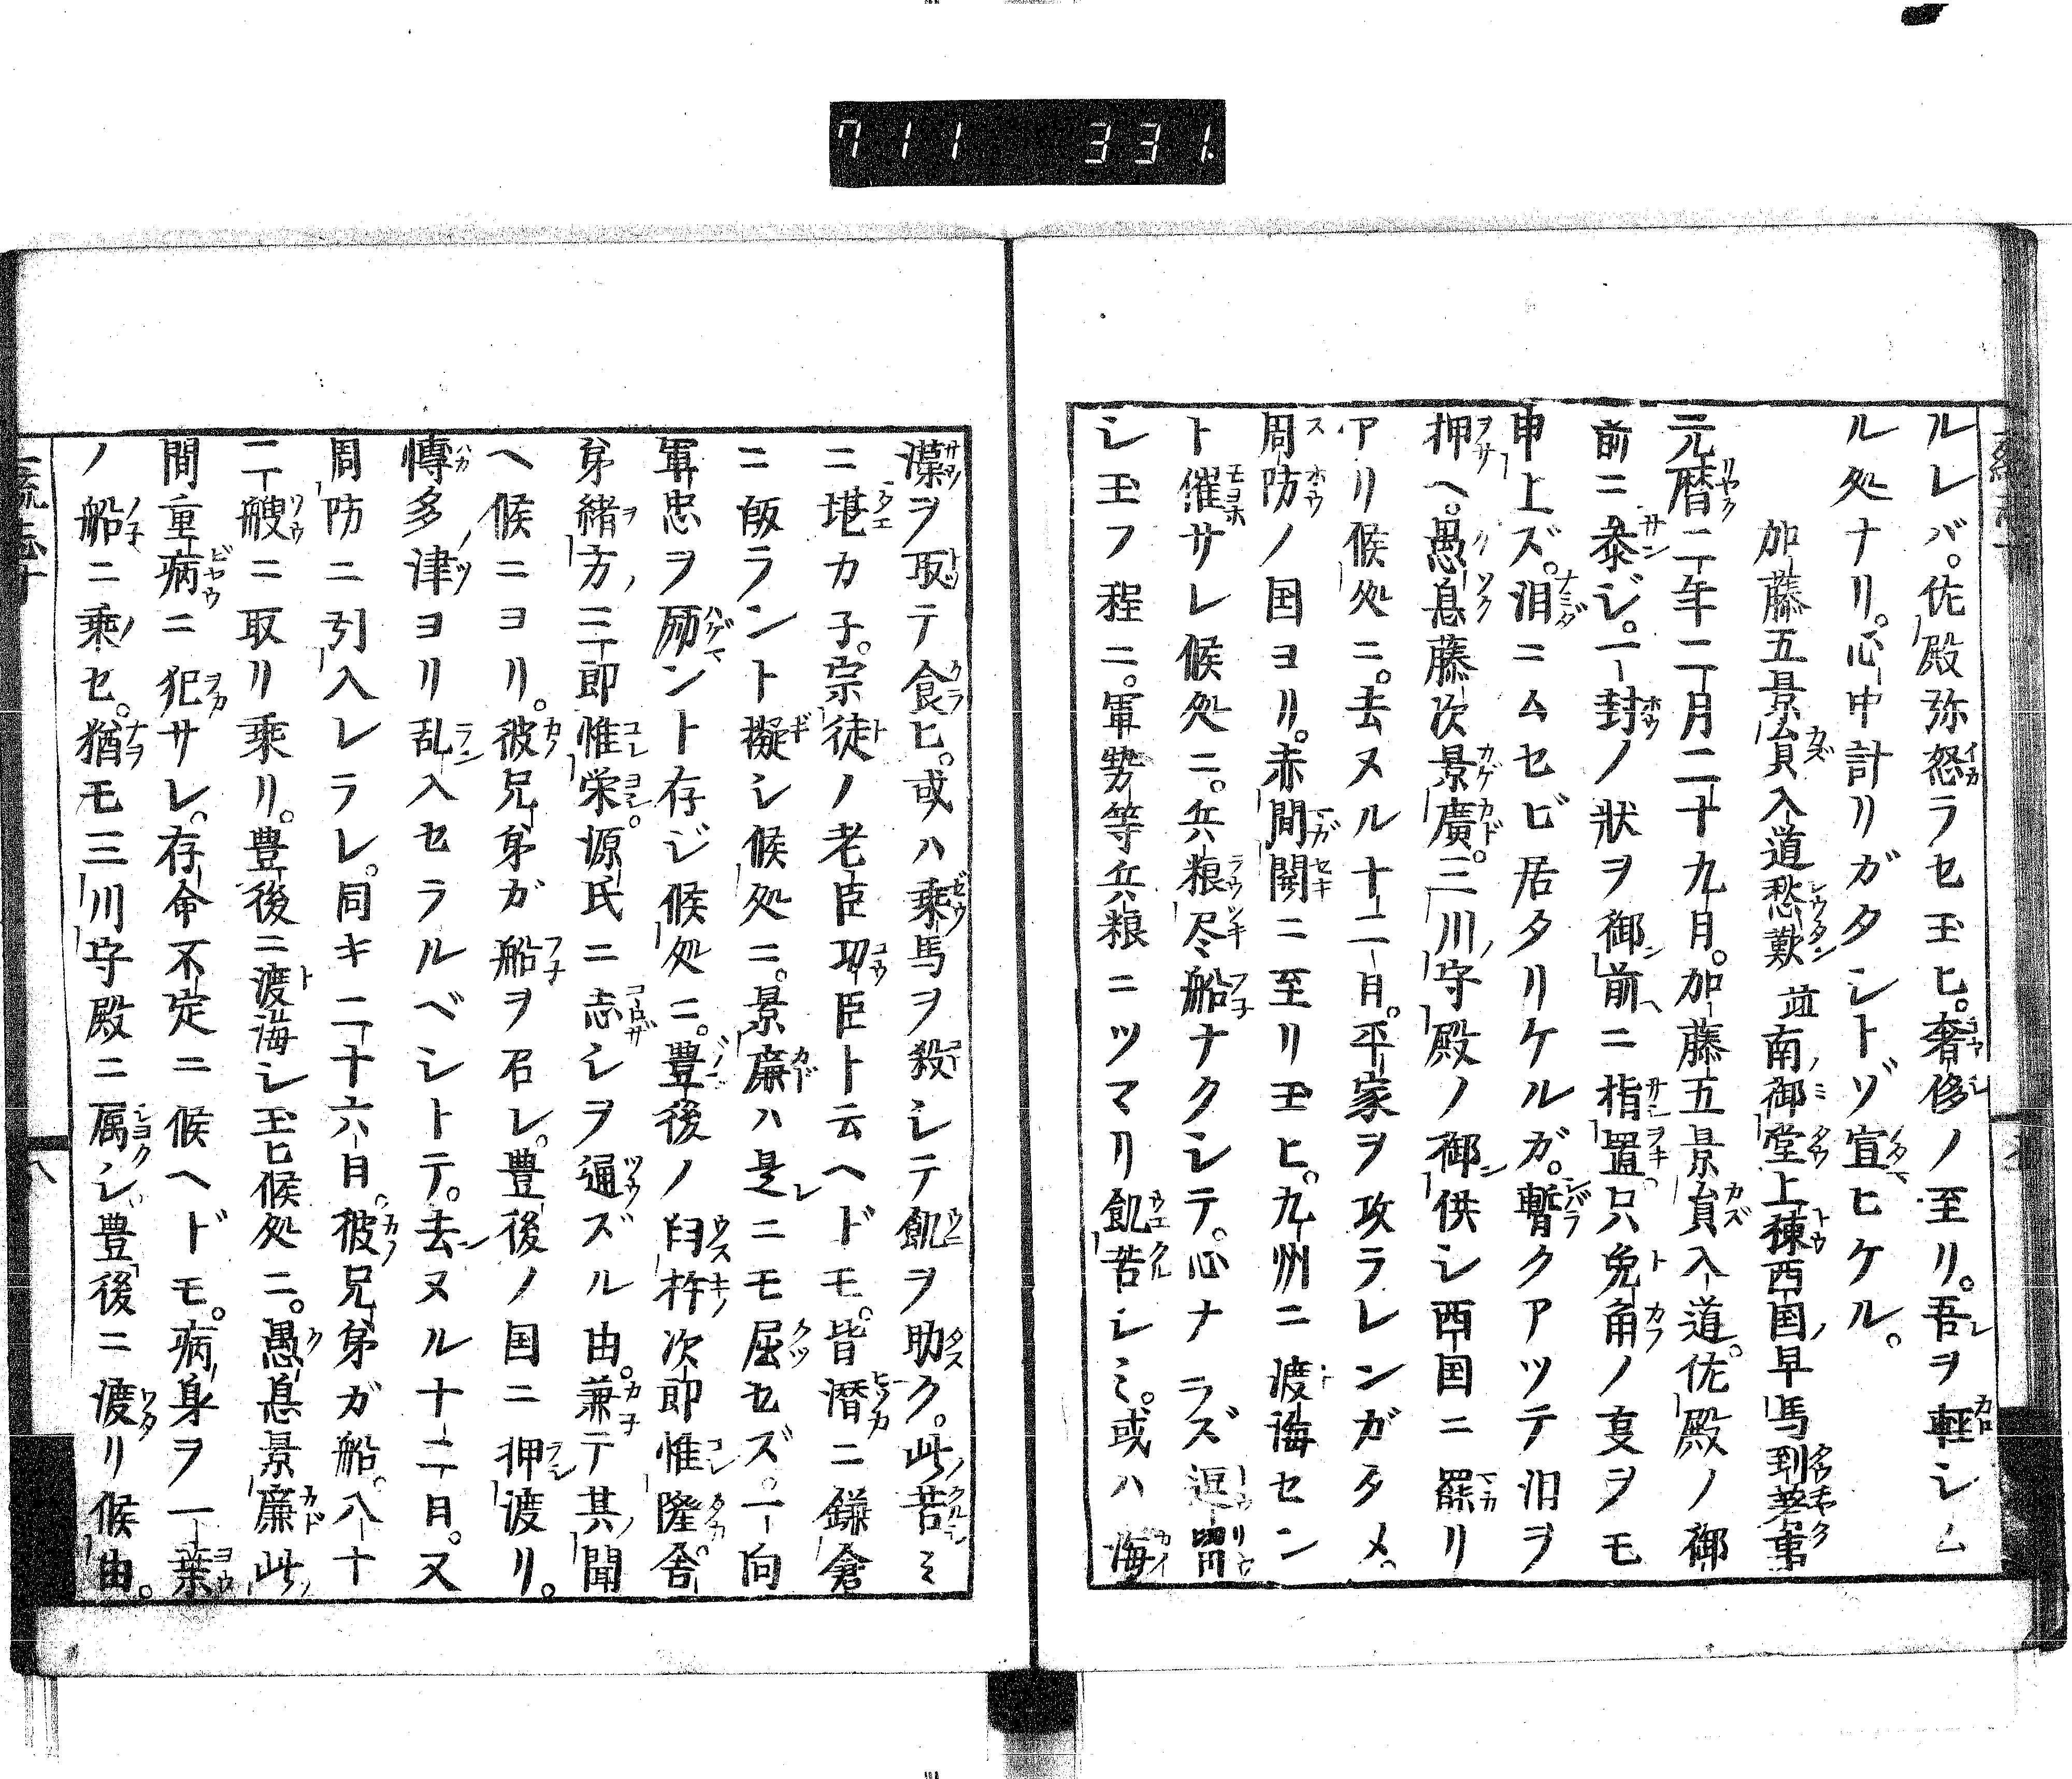 711 331.
ルレバ。佐殿弥怒ラセ玉ヒ。奢侈ノ至リ。吾ヲ軽シム
ル処ナリ。心中計リガタシトゾ宣ヒケル。
加藤五景貟入道愁歎 並南御堂上棟西国早馬到著事
元暦二年二月二十九日。加藤五景貟入道。佐殿ノ御
前ニ参ジ。一封ノ状ヲ御前ニ指置。只兔角ノ叓ヲモ
申上ズ。泪ニムセビ居タリケルガ。暫クアツテ泪ヲ
押ヘ。愚息藤次景廣。三川守殿ノ御供シ西国ニ罷リ
アリ候処ニ。去ヌル十二月。平家ヲ攻ラレンガタメ。
周防ノ国ヨリ。赤間関ニ至リ玉ヒ。九州ニ渡海セン
ト催サレ候処ニ。兵粮尽船ナクシテ。心ナラズ逗留
シ玉フ程ニ。軍勢等兵粮ニツマリ飢苦シミ。或ハ海
藻ヲ取テ食ヒ。或ハ乗馬ヲ殺シテ飢ヲ助ク。此苦ミ
ニ堪カ子。宗徒ノ老臣功臣ト云ヘドモ。皆潜ニ鎌倉
ニ皈ラント擬シ候処ニ。景廉ハ是ニモ屈セズ。一向
軍忠ヲ励ント存ジ候処ニ。豊後ノ臼杵次郎惟隆。舎
弟緒方三郎惟栄。源氏ニ志シヲ通ズル由。兼テ其聞
ヘ候ニヨリ。彼兄弟ガ船ヲ召レ。豊後ノ国ニ押渡リ。
慱多津ヨリ乱入セラルベシトテ。去ヌル十二月。又
周防ニ引入レラレ。同キ二十六日。彼兄弟ガ船。八十
二艘ニ取リ乗リ。豊後ニ渡海シ玉ヒ候処ニ。愚息景廉此
間重病ニ犯サレ。存命不定ニ候ヘドモ。病身ヲ一葉
ノ船ニ乗セ。猶モ三川守殿ニ属シ。豊後ニ渡リ候由。
八